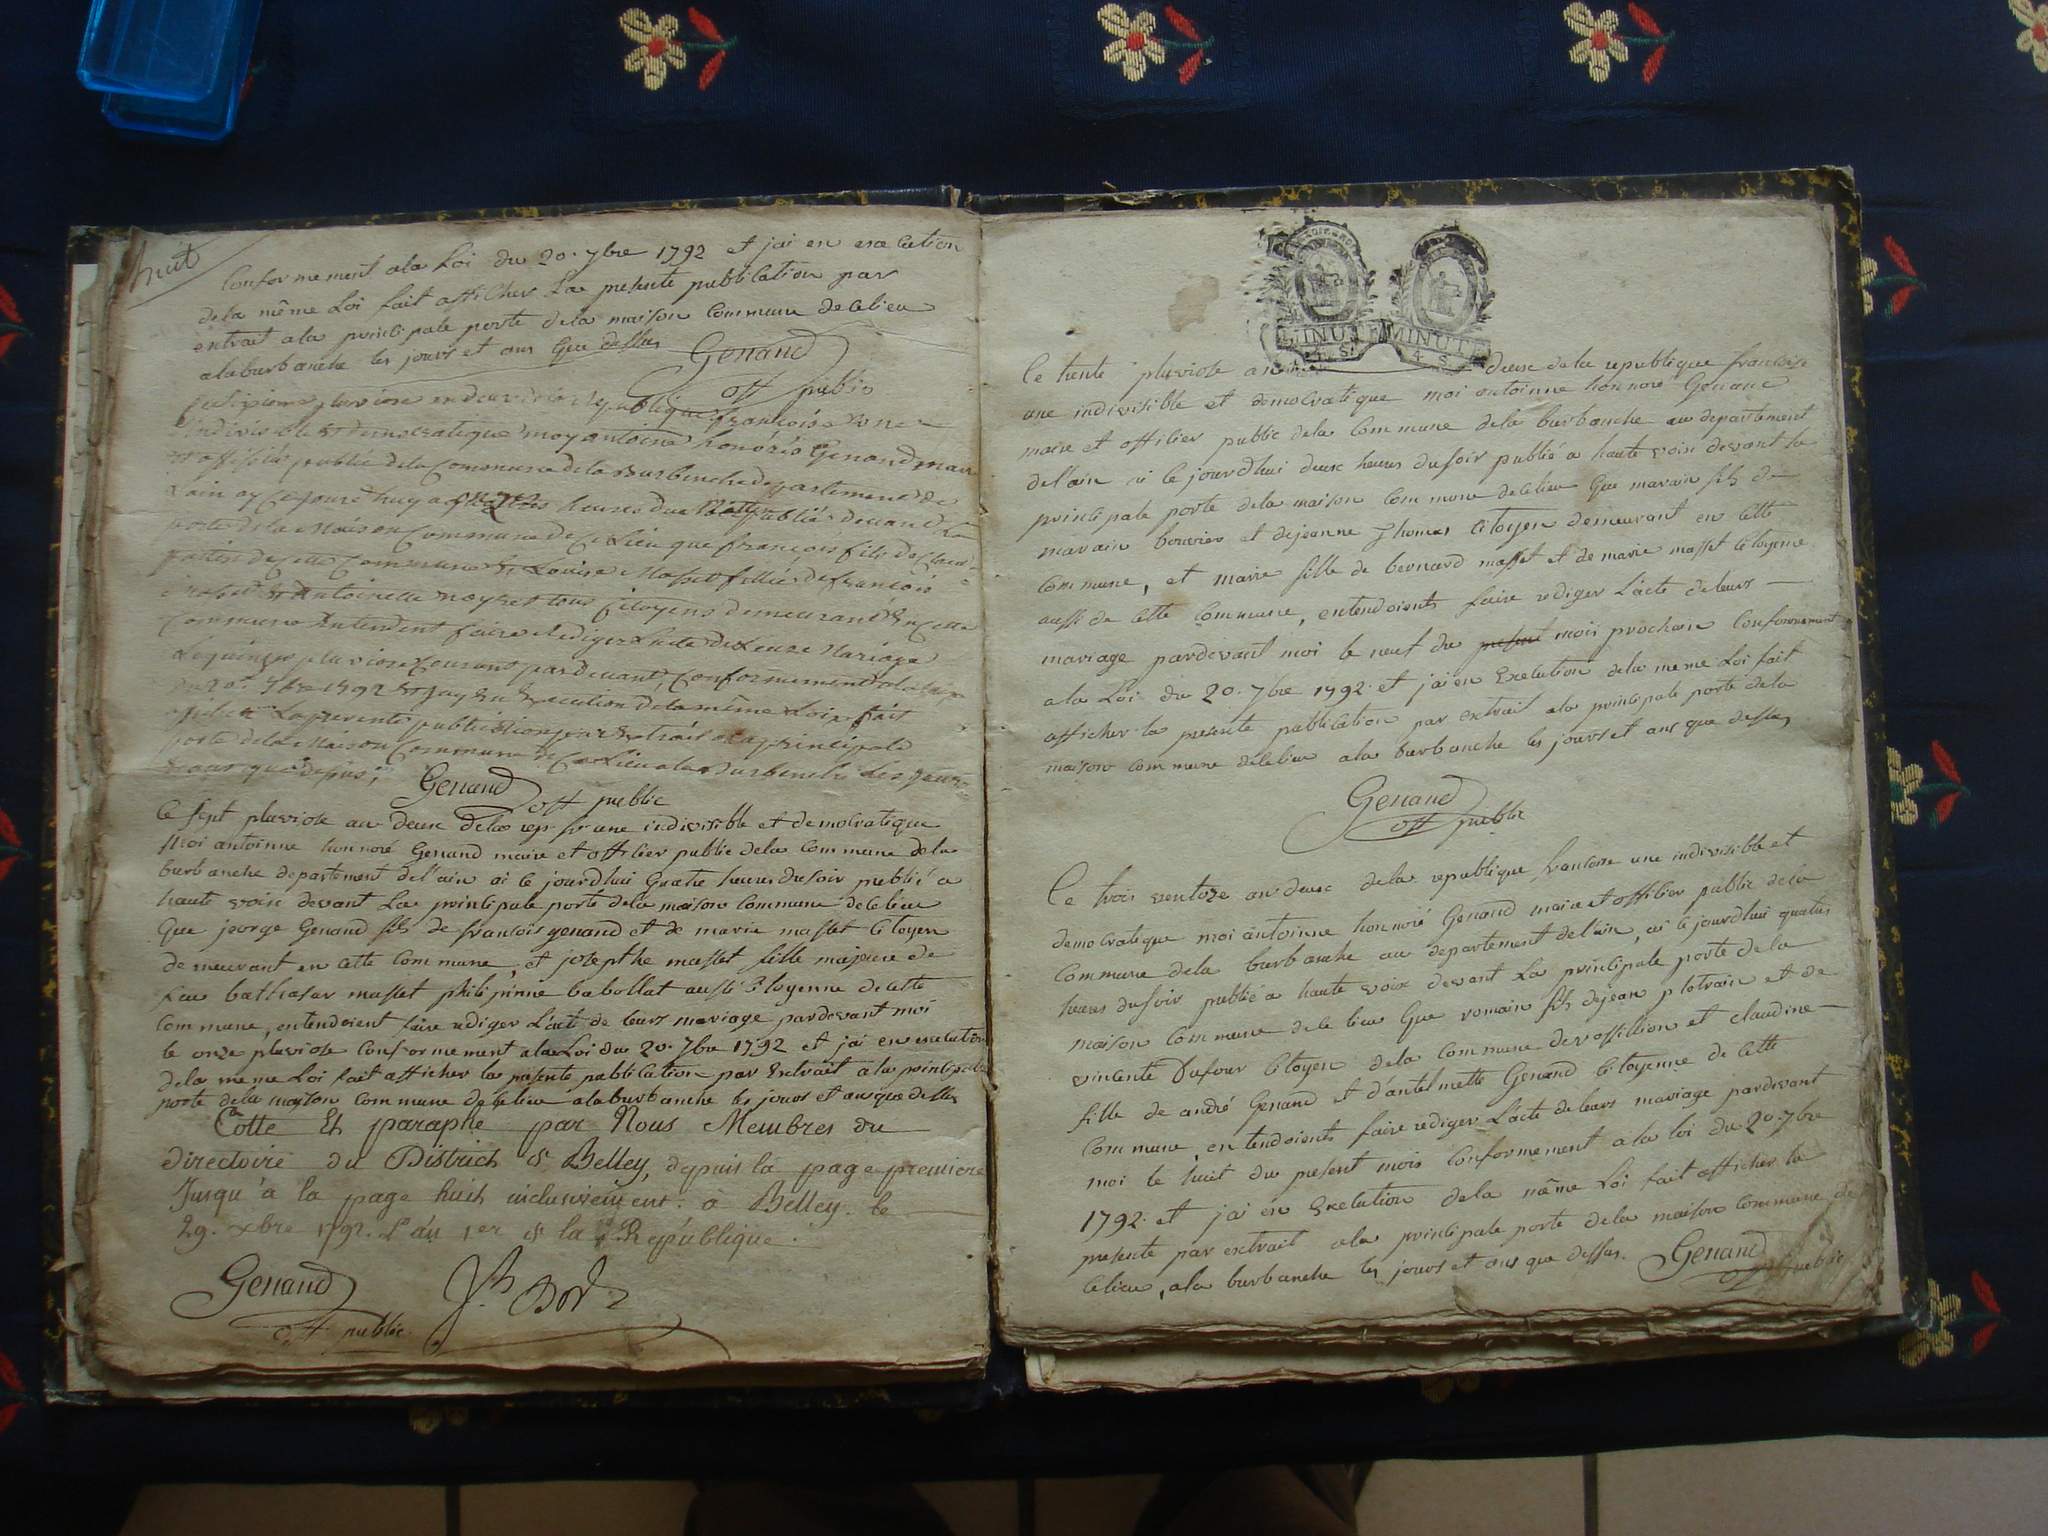 huit
Conformement ala Loi du 20. 7bre 1792 et j'ai en execution
de la même Loi fait afficher La presente publication par
extrait ala principale porte dela maison Commune de ce lieu
alaburbanche les jours et ans que dessus Genand
off public
pluviose an deux de la republique françoise une
indivisible et democratique moy antoine honoré Genand maire
et officier public dela Commune dela Burbanche departement de
Lain ay ce jourd'huy a heures du publié devand la
porte de la Maison Commune de ce Lieu que françois fils de
de cette Commune et Louise Masset fillie de françois
Masset et Antoinette tous Citoyens demeurant en cette
Commune Entendent faire Rediger Lacte de Leure Mariage
Le quinze pluviose Courant pardevant Conformement ala Loix
du 20. 7bre 1792 et Jay En Execution de la même Loix fait
afficher La presente publication par Extrait a la principale
porte de la Maison Commune de ce Lieu ala Burbenche Les jours
et ans que dessus,
Genand off public
Ce sept pluviose an deux dela rep. fr une indivisible et democratique
Moi antoinne honnoré Genand maire et officier public dela Commune dela
burbanche departement de l'ain ai ce jourdhui quatre heures dusoir publié a
haute voix devant La principale porte dela maison Commune de ce lieu
Que jeorge Genand fils de francois genand et de marie masset Citoyen
demeurant en cette Commune, et josepthe masset fille majeure de
feu balthasar masset philipinne babollat aussi Citoyenne de cette
Commune, entendoient faire rediger L'acte de leurs mariage pardevant moi
le onze pluviose Conformement ala Loi du 20. 7bre 1792 et j'ai en execution
dela meme Loi fait afficher la presente publication par Extrait a la principale
porte de la maison Commune de ce lieu alaburbanche les jours et ans que dessus
Cotté Et paraphé par Nous Membres du
directoire du District de Belley, depuis la page premiere
Jusqu'à la page huit inclusivement. à Belley le
29. xbre 1792. L'an 1er de la République.
Genand
off public
MINUTE MINUTE
4. S. 4 S.
Ce trente pluviose an deux de la republique francoise
une indivisible et democratique moi antoinne honnoré Genand
maire et officier public dela Commune dela burbanche au departement
del'ain ai le jourd'hui deux heures dusoir publié a haute voix devant la
principale porte dela maison Commune de ce lieu que marain fils de
marain bouvier et dejeanne Thomas Citoyen demeurant en cette
Commune, et marie fille de bernard masset et de marie masset Citoyenne
aussi de cette Commune, entendoients faire rediger L'acte deleurs
mariage pardevant moi le neuf du present mois prochain Conformement
ala Loi du 20. 7bre 1792. et j'ai en Execution dela meme Loi fait
afficher la presente publication par extrait ala principale porte dela
maison Commune de ce lieu ala burbanche les jours et ans que dessus
Genand
off public
Ce trois ventoze an deux dela republique francoise une indivisible et
democratique moi antoinne honnoré Genand maire et officier public dela
Commune dela burbanche au departement del'ain, ai ce jourdhui quatres
heures dusoir publié a haute voix devant La principale porte de la
maison Commune de ce lieu que romain fils dejean plotrain et de
vincente Dufour Citoyen dela Commune devossillion et claudine
fille de andré Genand et d'antelmette Genand Citoyenne de cette
Commune, entendoients faire rediger L'acte deleurs mariage pardevant
moi le huit du present mois Conformement a la loi du 20. 7bre
1792. et j'ai en Execution dela même Loi fait afficher la
presente par extrait ala principale porte dela maison Commune de
ce lieu, ala burbanche les jours et ans que dessus. Genand
off public